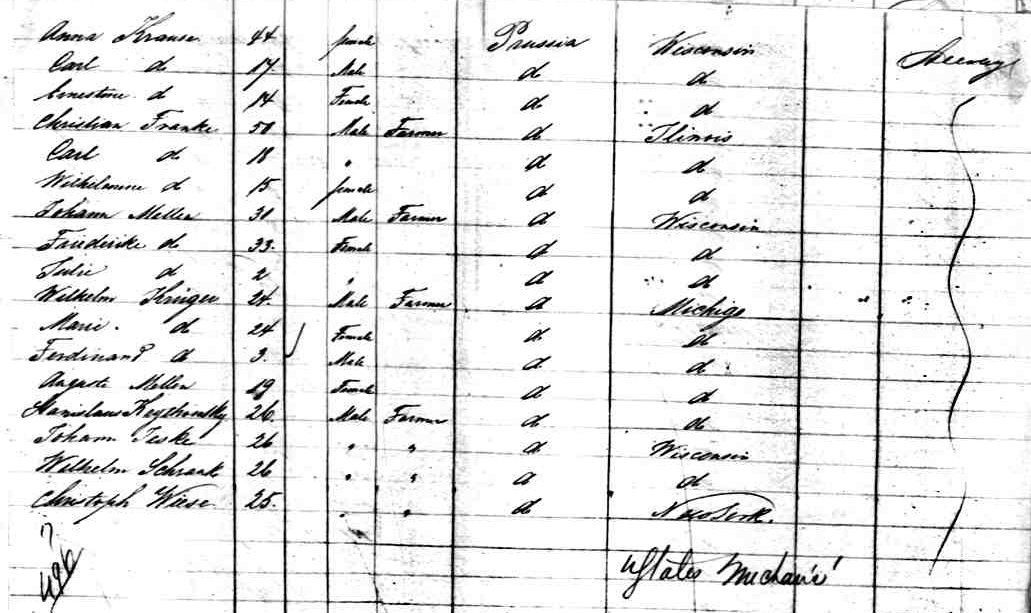 Anna Krause 44 female Prussia Wisconsin
Carl do 17 Male do do
Ernestine do 14 Female do do
Christian Franke 50 Male Farmer do Ilinois
Carl do 18 " do do
Wilhelmine do 15 female do do
Johann Mellen 30 Male Farmer do Wisconsin
Friederike do 33. Female do do
Julie do 2 " do do
Wilhelm Krüger 24. Male Farmer do Michiga
Marie. do 24 Female do do
Ferdinand do 3. Male do do
Auguste Mellen 19 Female do do
Stanislaus 26. Male Farmer do do
Johann Teske 26 " " do Wisconsin
Wilhelm Schrank 26 " " do do
Christoph Wiese 25. " " do New York.
496